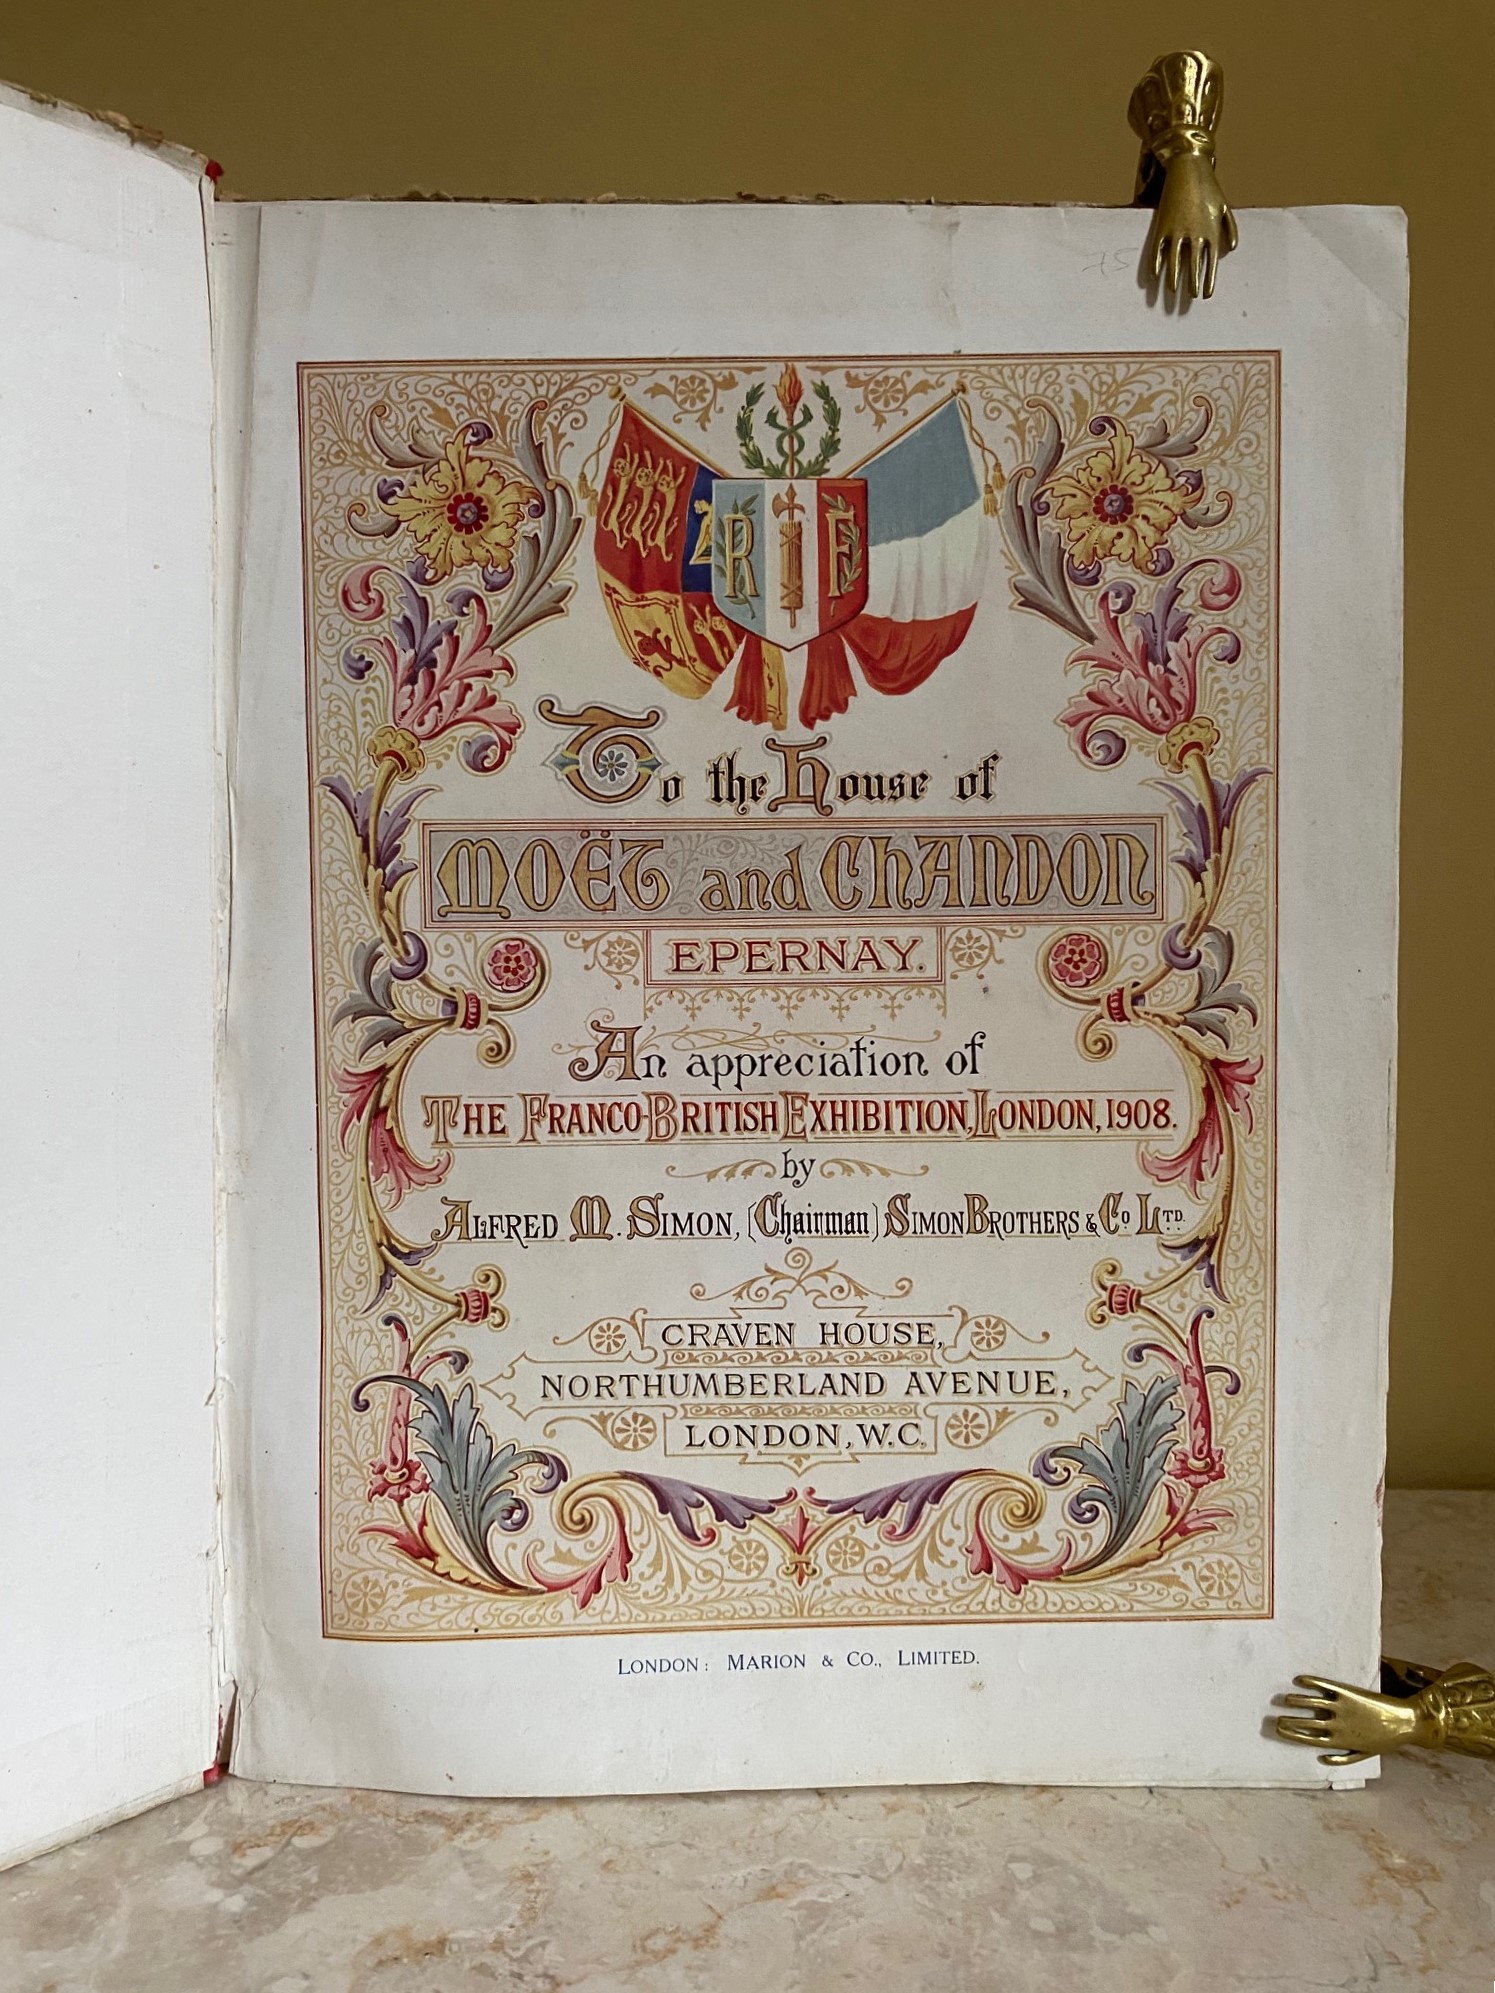 75
R F
To the House of
MOËT and CHANDON
EPERNAY.
An appreciation of
THE FRANCO-BRITISH EXHIBITION, LONDON, 1908.
by
ALFRED M. SIMON, (Chairman) SIMON BROTHERS & Co LTD.
CRAVEN HOUSE,
NORTHUMBERLAND AVENUE,
LONDON, W.C.
LONDON: MARION & CO., LIMITED.